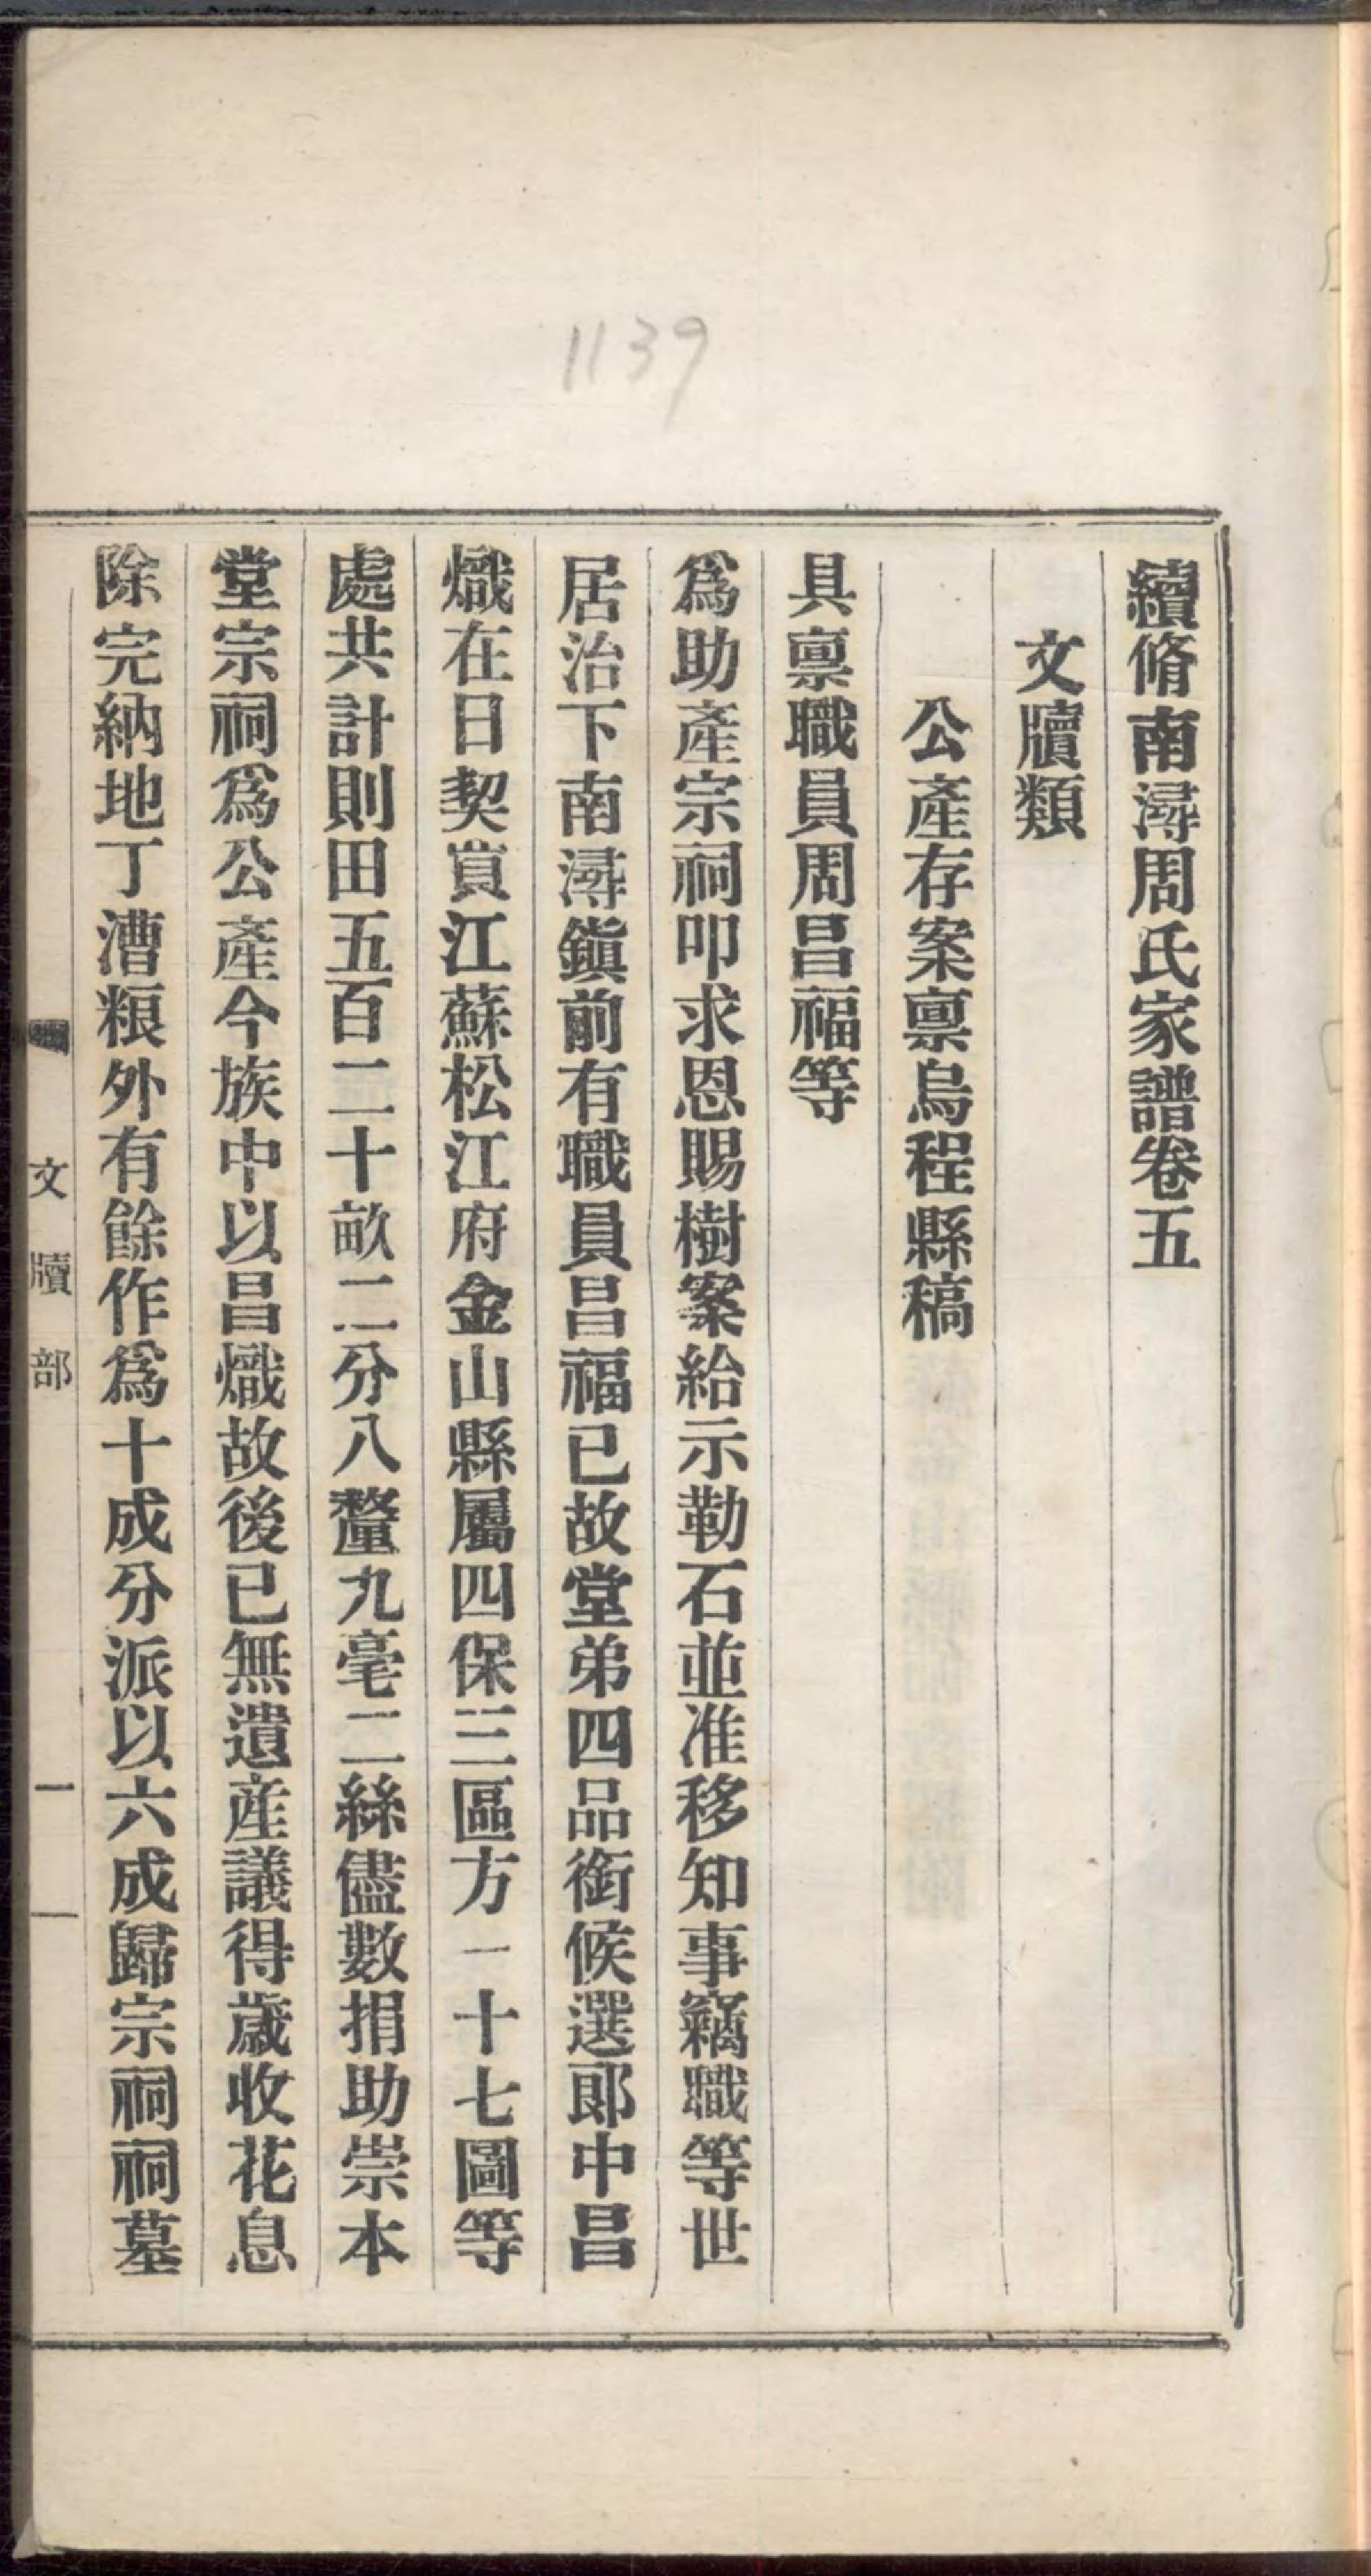 1139
續脩南潯周氏家譜卷五
文牘類
公產存案稟烏程縣稿
具稟職員周昌福等
爲助產宗祠叩求恩賜樹案給示勒石並准移知事竊職等世
居治下南潯鎭前有職員昌福已故堂弟四品銜候選郎中昌
熾在日契買江蘇松江府金山縣屬四保三區方一十七圖等
處共計則田五百二十畝二分八釐九毫二絲儘數捐助崇本
堂宗祠爲公產今族中以昌熾故後已無遺產議得歲收花息
除完納地丁漕粮外有餘作爲十成分派以六成歸宗祠祠墓
文牘部
一